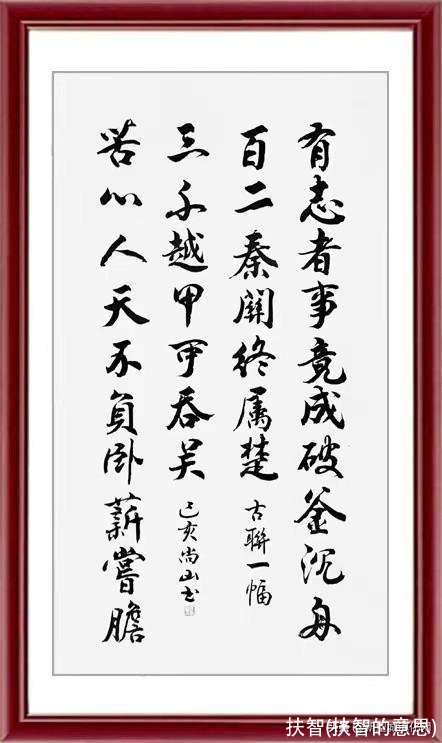 有志者事竟成破釜沉舟
百二秦關終属楚
古聯一幅
苦心人天不負卧薪嘗膽
三千越甲可吞吴
己亥尚山书
扶智(扶智的意思)